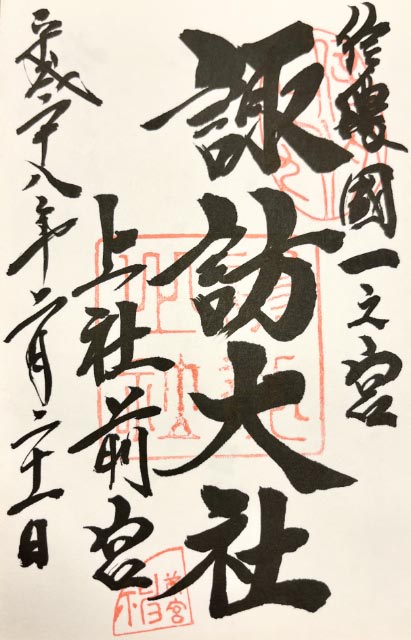 信濃國一之宮
諏訪大社
上社前宮
平成二十八年六月二十一日
前宮